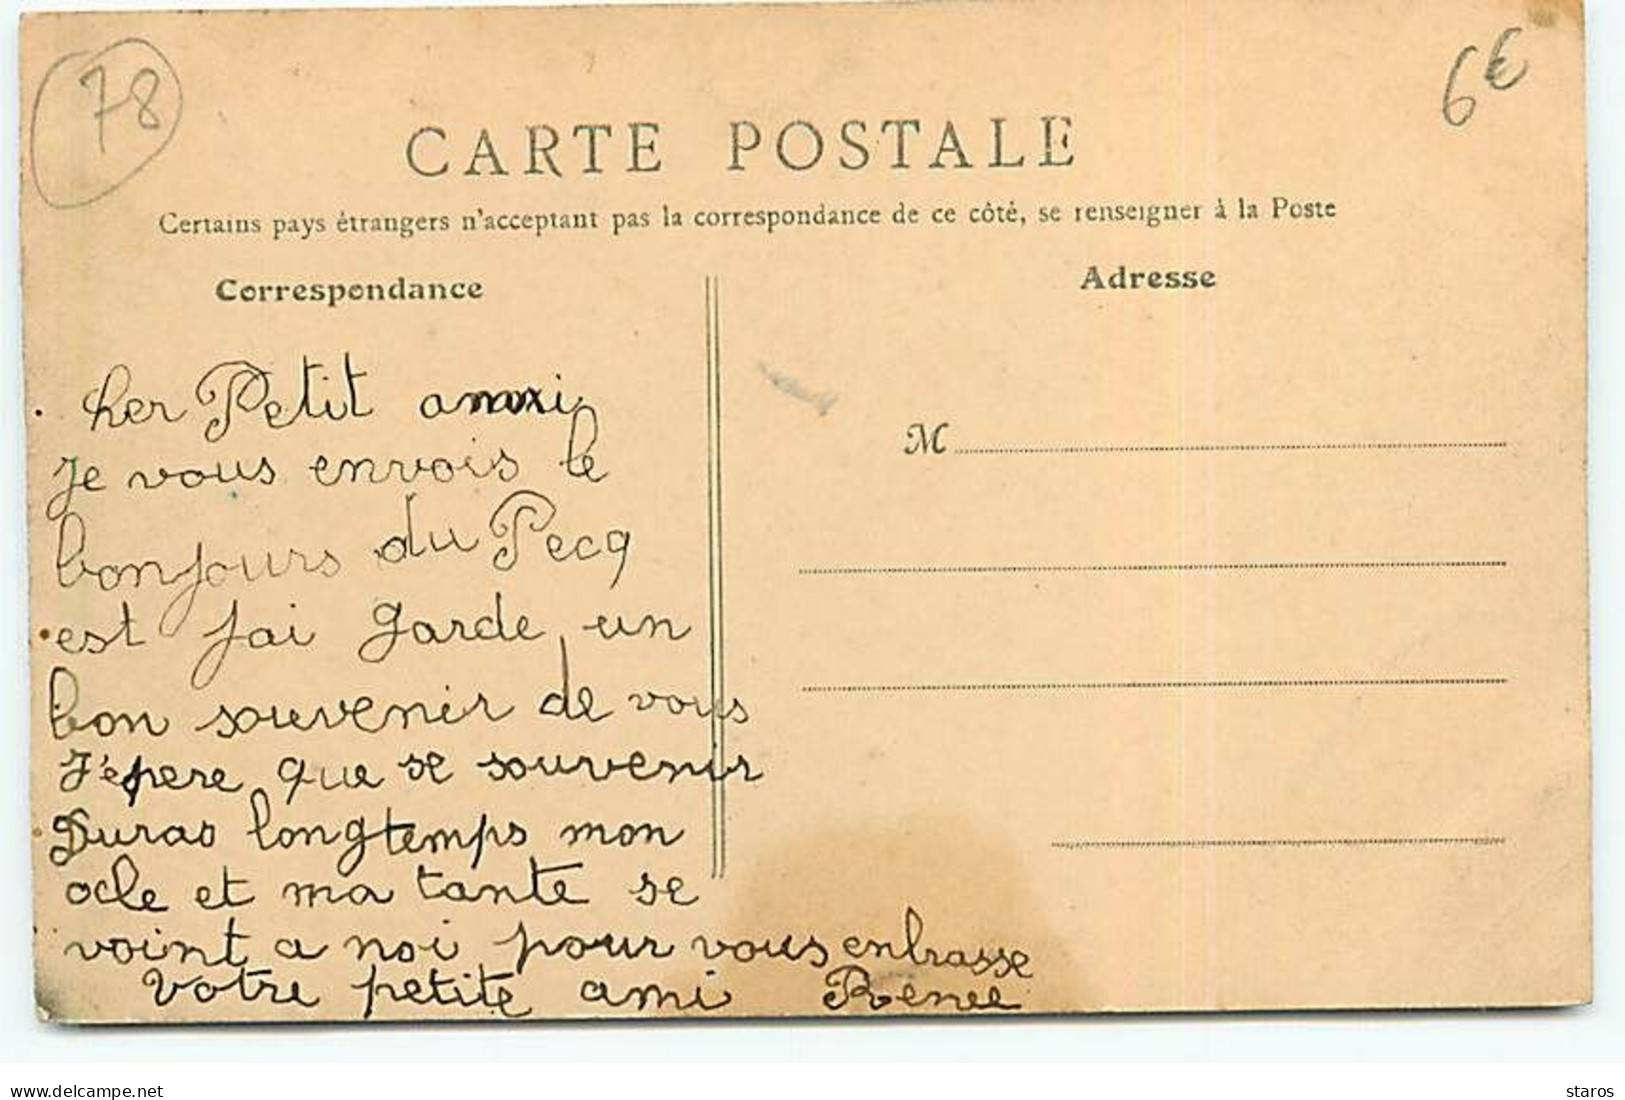 78
6€
CARTE POSTALE
Certains pays étrangers n'acceptant pas la correspondance de ce côté, se renseigner à la Poste
Correspondance
Adresse
M
her Petit ami
Je vous envois le
bonjours du Pecq
est j'ai garde un
bon souvenir de vous
J'épere que se souvenir
Duras longtemps mon
ocle et ma tante se
voint a noi pour vous enbrasse
Votre petite ami Renee
www.delcampe.net
staros